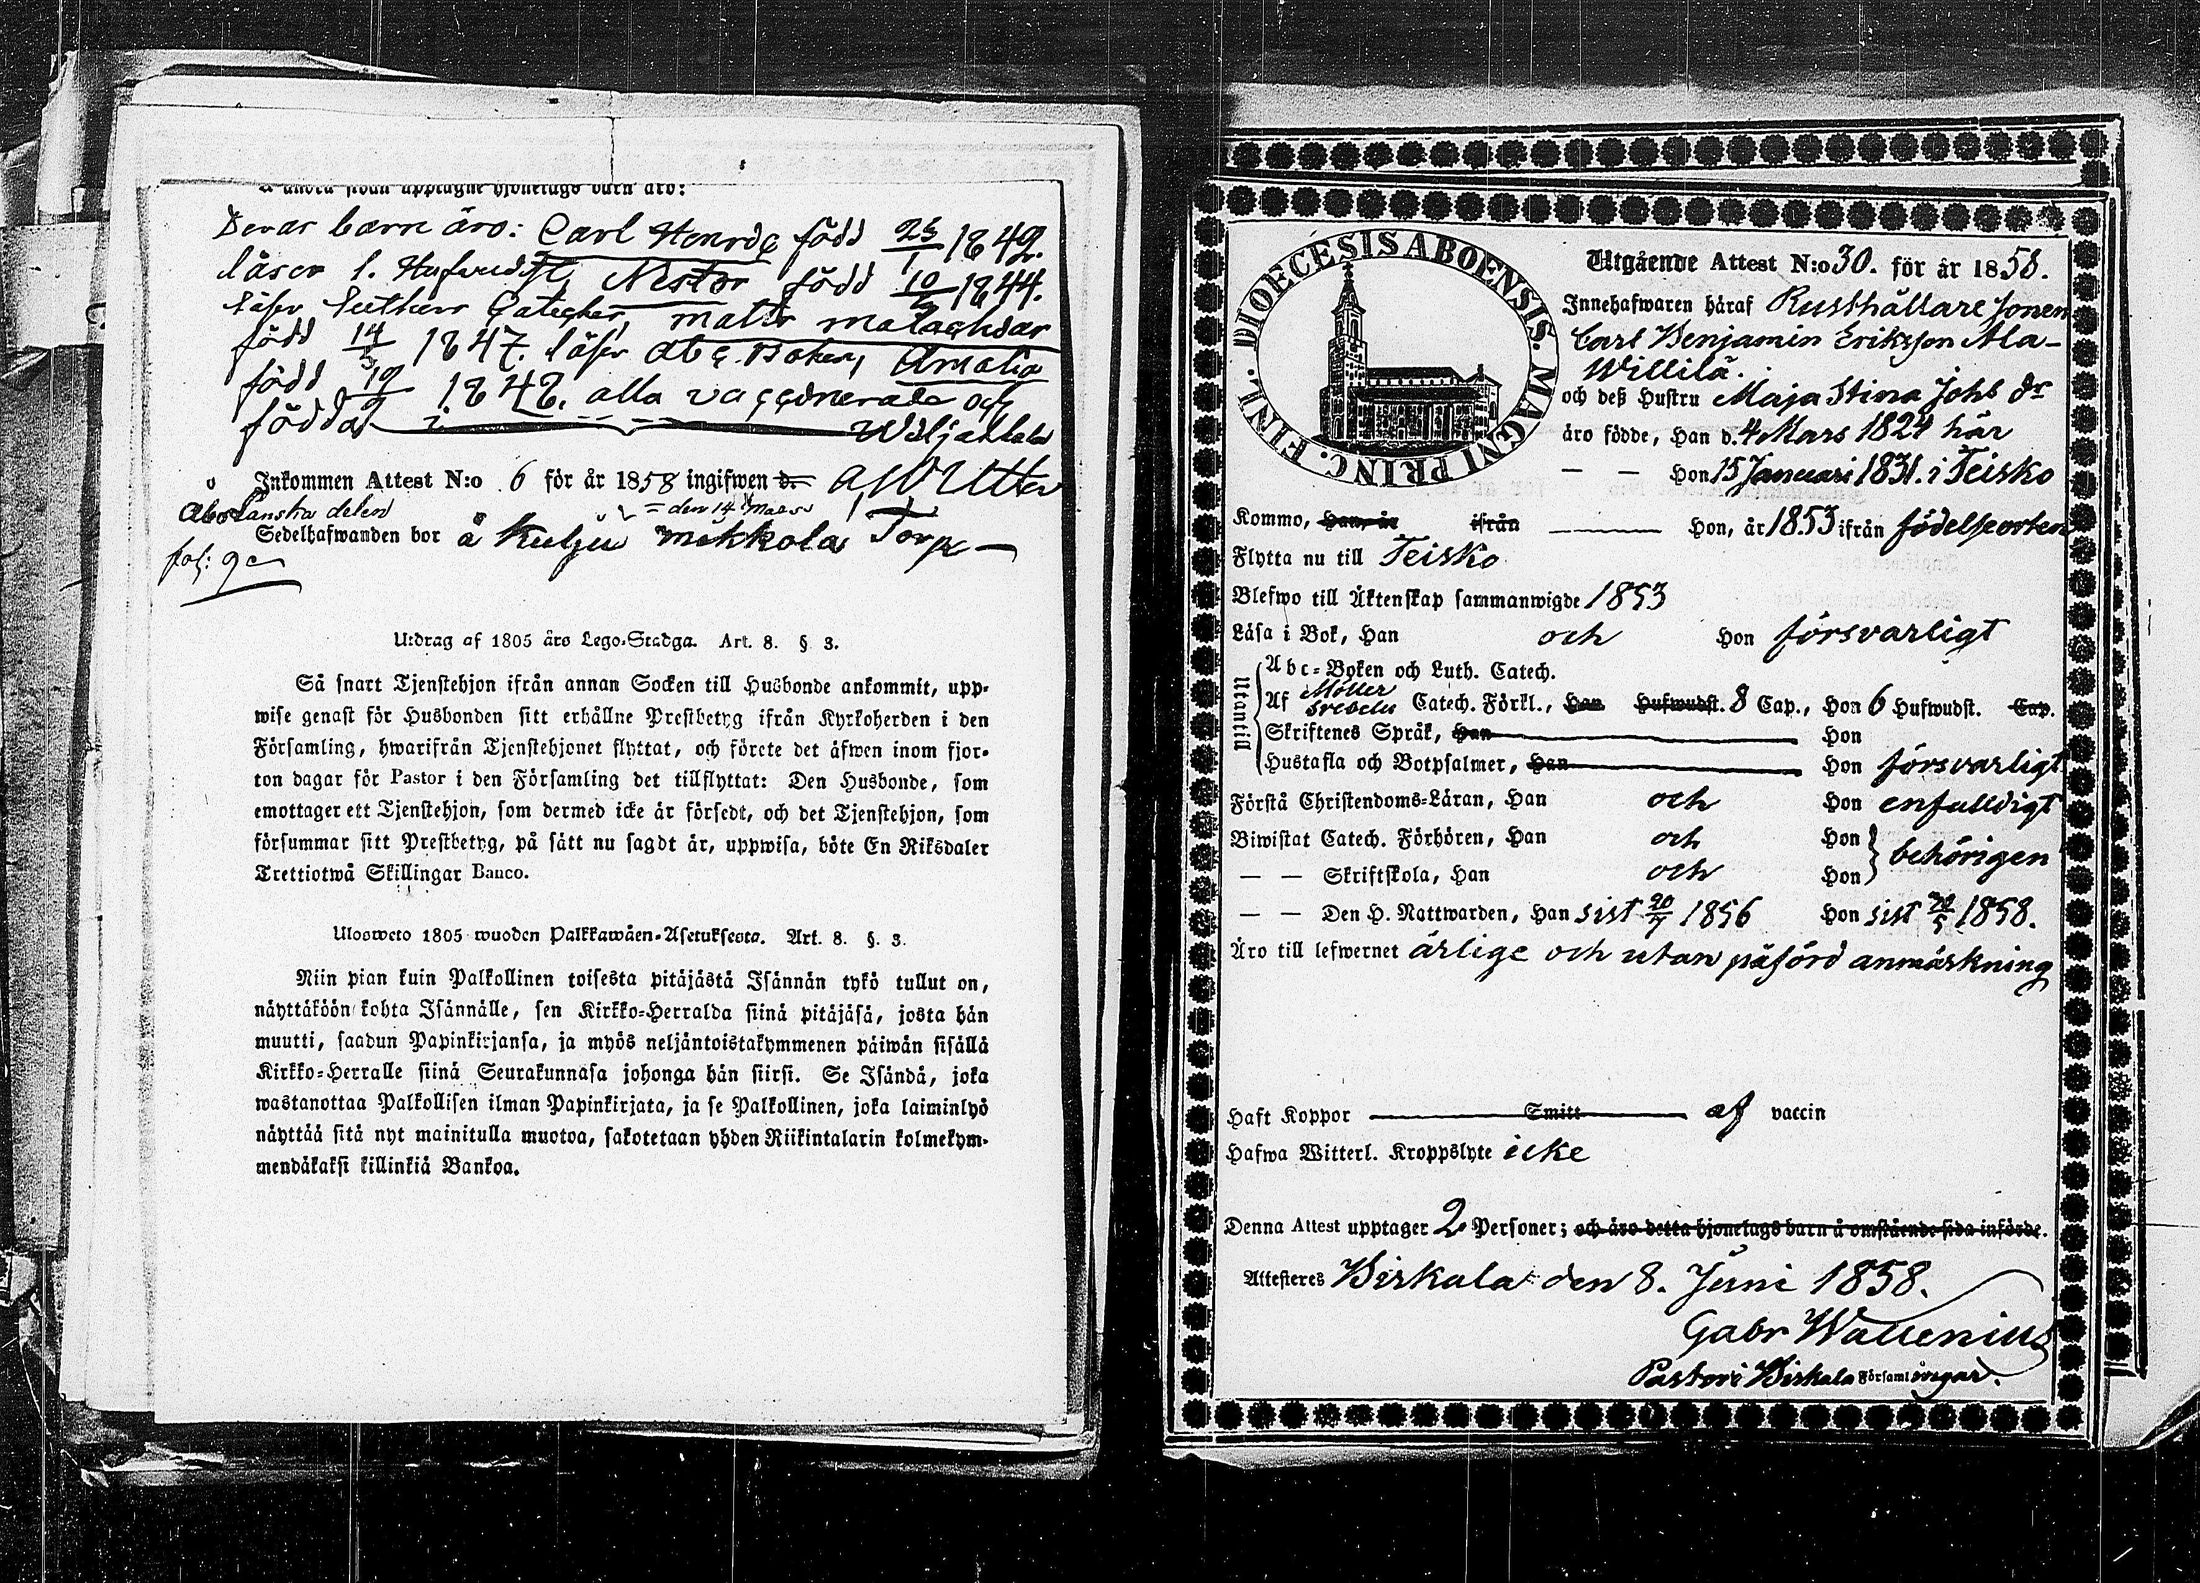 å andra sidan upptagne hjonelags barn äro:
Deras barn äro: Carl Henric född 25/1 1842.
läser l. Hufvudst, Nestor född 10/2 1844.
läser Luthers Cateches, född
född 14/5 1847. läser abc. Boken, Amalia
född 19/9 1848. alla vaccinerade och
födda i Wiljakkala
Inkommen Attest N:o 6 för år 1858 ingifwen d. A W Utter
Åbolänska delen = den 14 Mars
Sedelhafwanden bor å Kulju Mikkola Torp
fol: 90
Utdrag af 1805 års Lego-Stadga. Art. 8. § 3.
Så snart Tjenstehjon ifrån annan Socken till Husbonde ankommit, upp-
wise genast för Husbonden sitt erhållne Prestbetyg ifrån Kyrkoherden i den
Församling, hwarifrån Tjenstehjonet flyttat, och förete det äfwen inom fjor-
ton dagar för Pastor i den Församling det tillflyttat: Den Husbonde, som
emottager ett Tjenstehjon, som dermed icke är försedt, och det Tjenstehjon, som
försummar sitt Prestbetyg, på sätt nu sagdt är, uppwisa, böte En Riksdaler
Trettiotwå Skillingar Banco.
Ulosweto 1805 wuoden Palkkawäen-Asetuksesta. Art. 8. §. 3.
Niin pian kuin Palkollinen toisesta pitäjästä Isännän tykö tullut on,
näyttäköön kohta Isännälle, sen Kirkko-Herralda siinä pitäjäsä, josta hän
muutti, saadun Papinkirjansa, ja myös neljäntoistakymmenen päiwän sisällä
Kirkko-Herralle siinä Seurakunnasa johonga hän siirsi. Se Isändä, joka
wastanottaa Palkollisen ilman Papinkirjata, ja se Palkollinen, joka laiminlyö
näyttää sitä nyt mainitulla muotoa, sakotetaan yhden Riikintalarin kolmekym-
mendäkaksi killinkiä Bankoa.
DIOECESIS ABOENSIS. MAGNI PRINC. FINL.
Utgående Attest N:o 30. för år 1858.
Innehafwaren häraf Rusthållare Sonen
Carl Benjamin Eriksson Ala-
Willilä.
och deß Hustru Maja Stina Johs dr
äro födde, Han d. 4 Mars 1824 här
— — Hon 15 Januari 1831. i Teisko
Kommo, Han, år ifrån Hon, år 1853 ifrån födelseorten
Flytta nu till Teisko
Blefwo till Äktenskap sammanwigde 1853
Läsa i Bok, Han och Hon försvarligt
Utantill
Abc-Boken och Luth. Catech.
Af Möller Svebelii Catech. Förkl., Han Hufwudst. 8 Cap., Hon 6 Hufwudst. Cap.
Skriftenes Språk, Han Hon
Hustafla och Botpsalmer, Han Hon försvarligt
Förstå Christendoms-Läran, Han och Hon enfalldigt
Biwistat Catech. Förhören, Han och Hon
behörigen
— — Skriftskola, Han och Hon
— — Den H. Nattwarden, Han sist 20/7 1856 Hon sist 20/5 1858.
Äro till lefwernet ärlige och utan påförd anmärkning
Haft Koppor Smitt af vaccin
Hafwa Witterl. Kroppslyte icke
Denna Attest upptager 2 Personer; och äro detta hjonelags barn å omstående sida införde.
Attesteres Birkala den 8. Juni 1858.
Gabr Wallenius
Pastor i Birkala Församlingar.